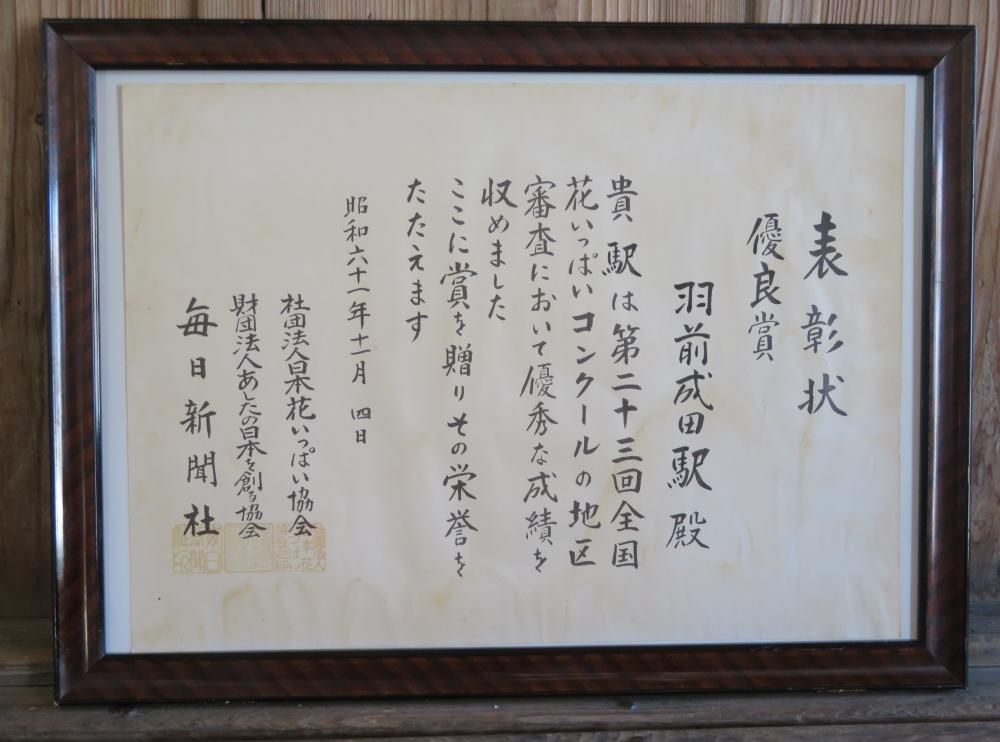 表彰状
優良賞
羽前成田駅殿
貴駅は第二十三回全国
花いっぱいコンクールの地区
審査において優秀な成績を
収めました
ここに賞を贈りその栄誉を
たたえます
昭和六十一年十一月 四日
社団法人日本花いっぱい協会
財団法人あしたの日本を創る協会
毎日新聞社